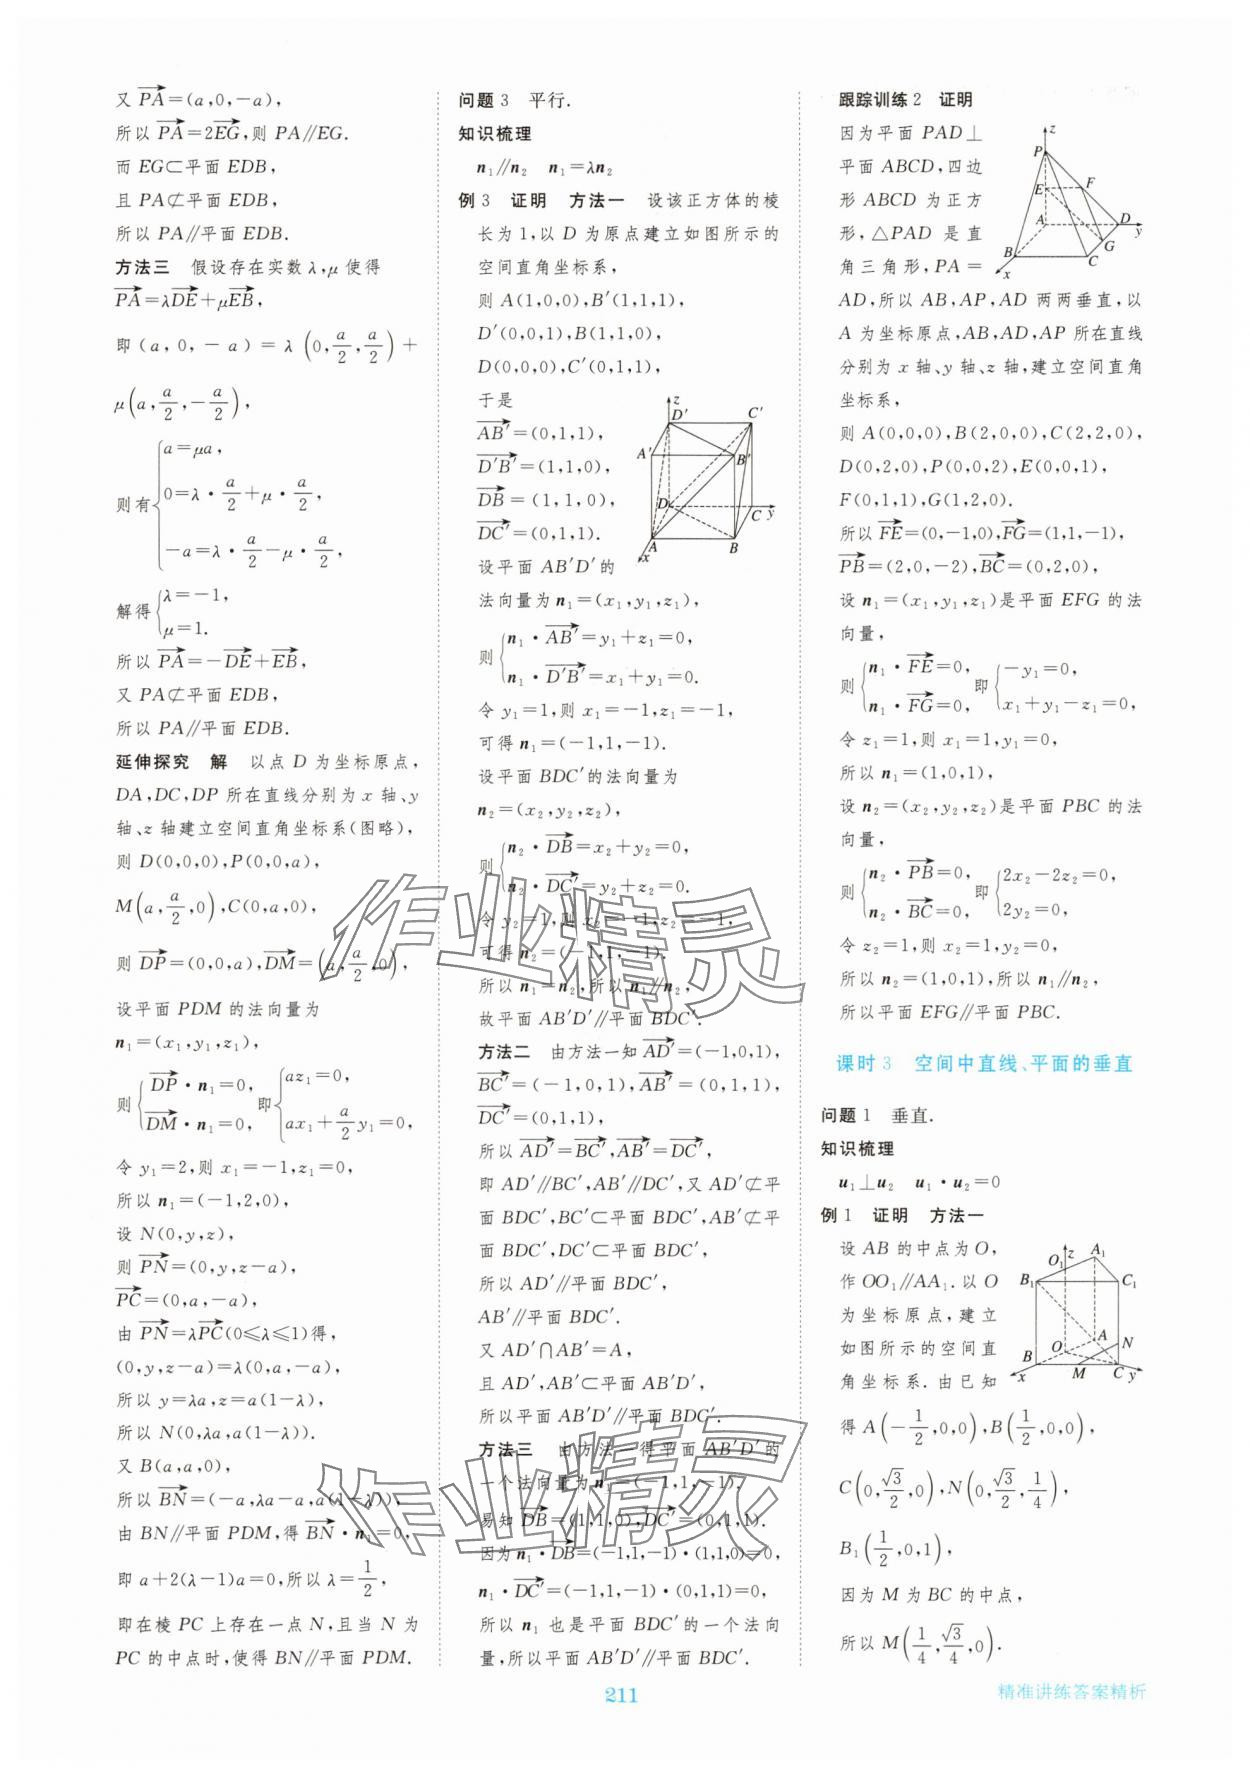 又 PA=(a,0,-a),
所以 PA=2EG,则 PA∥EG.
而 EG⊂平面 EDB,
且 PA⊄平面 EDB,
所以 PA∥平面 EDB.
方法三 假设存在实数 λ,μ 使得
PA=λDE+μEB,
即(a,0,-a)=λ(0,a/2,a/2)+
μ(a,a/2,-a/2),
则有{a=μa,
0=λ·a/2+μ·a/2,
-a=λ·a/2-μ·a/2,
解得{λ=-1,
μ=1.
所以 PA=-DE+EB,
又 PA⊄平面 EDB,
所以 PA∥平面 EDB.
延伸探究 解 以点 D 为坐标原点,
DA,DC,DP 所在直线分别为 x 轴、y
轴、z 轴建立空间直角坐标系(图略),
则 D(0,0,0),P(0,0,a),
M(a,a/2,0),C(0,a,0),
则 DP=(0,0,a),DM=(a,a/2,0),
设平面 PDM 的法向量为
n₁=(x₁,y₁,z₁),
则{DP·n₁=0, 即{az₁=0,
DM·n₁=0, ax₁+a/2y₁=0,
令 y₁=2,则 x₁=-1,z₁=0,
所以 n₁=(-1,2,0),
设 N(0,y,z),
则 PN=(0,y,z-a),
PC=(0,a,-a),
由 PN=λPC(0≤λ≤1)得,
(0,y,z-a)=λ(0,a,-a),
所以 y=λa,z=a(1-λ),
所以 N(0,λa,a(1-λ)).
又 B(a,a,0),
所以 BN=(-a,λa-a,a(1-λ)),
由 BN∥平面 PDM,得 BN·n₁=0,
即 a+2(λ-1)a=0,所以 λ=1/2,
即在棱 PC 上存在一点 N,且当 N 为
PC 的中点时,使得 BN∥平面 PDM.
问题 3 平行.
知识梳理
n₁∥n₂ n₁=λn₂
例 3 证明 方法一 设该正方体的棱
长为 1,以 D 为原点建立如图所示的
空间直角坐标系,
则 A(1,0,0),B′(1,1,1),
D′(0,0,1),B(1,1,0),
D(0,0,0),C′(0,1,1),
于是
AB′=(0,1,1),
D′B′=(1,1,0),
DB=(1,1,0),
DC′=(0,1,1).
z
D′
C′
A′
B′
D
C
y
A
B
x
设平面 AB′D′的
法向量为 n₁=(x₁,y₁,z₁),
则{n₁·AB′=y₁+z₁=0,
n₁·D′B′=x₁+y₁=0.
令 y₁=1,则 x₁=-1,z₁=-1,
可得 n₁=(-1,1,-1).
设平面 BDC′的法向量为
n₂=(x₂,y₂,z₂),
则{n₂·DB=x₂+y₂=0,
n₂·DC′=y₂+z₂=0.
令 y₂=1,则 x₂=-1,z₂=-1,
可得 n₂=(-1,1,-1).
所以 n₁=n₂,所以 n₁∥n₂,
故平面 AB′D′∥平面 BDC′.
方法二 由方法一知 AD′=(-1,0,1),
BC′=(-1,0,1),AB′=(0,1,1),
DC′=(0,1,1),
所以 AD′=BC′,AB′=DC′,
即 AD′∥BC′,AB′∥DC′,又 AD′⊄平
面 BDC′,BC′⊂平面 BDC′,AB′⊄平
面 BDC′,DC′⊂平面 BDC′,
所以 AD′∥平面 BDC′,
AB′∥平面 BDC′.
又 AD′∩AB′=A,
且 AD′,AB′⊂平面 AB′D′,
所以平面 AB′D′∥平面 BDC′.
方法三 由方法一得平面 AB′D′的
一个法向量为 n₁=(-1,1,-1).
易知 DB=(1,1,0),DC′=(0,1,1).
因为 n₁·DB=(-1,1,-1)·(1,1,0)=0,
n₁·DC′=(-1,1,-1)·(0,1,1)=0,
所以 n₁ 也是平面 BDC′的一个法向
量,所以平面 AB′D′∥平面 BDC′.
跟踪训练 2 证明
因为平面 PAD⊥
平面 ABCD,四边
形 ABCD 为正方
形,△PAD 是直
角三角形,PA=
z
P
E
F
A
D
y
G
B
C
x
AD,所以 AB,AP,AD 两两垂直,以
A 为坐标原点,AB,AD,AP 所在直线
分别为 x 轴、y 轴、z 轴,建立空间直角
坐标系,
则 A(0,0,0),B(2,0,0),C(2,2,0),
D(0,2,0),P(0,0,2),E(0,0,1),
F(0,1,1),G(1,2,0).
所以 FE=(0,-1,0),FG=(1,1,-1),
PB=(2,0,-2),BC=(0,2,0),
设 n₁=(x₁,y₁,z₁)是平面 EFG 的法
向量,
则{n₁·FE=0, 即{-y₁=0,
n₁·FG=0, x₁+y₁-z₁=0,
令 z₁=1,则 x₁=1,y₁=0,
所以 n₁=(1,0,1),
设 n₂=(x₂,y₂,z₂)是平面 PBC 的法
向量,
则{n₂·PB=0, 即{2x₂-2z₂=0,
n₂·BC=0, 2y₂=0,
令 z₂=1,则 x₂=1,y₂=0,
所以 n₂=(1,0,1),所以 n₁∥n₂,
所以平面 EFG∥平面 PBC.
课时 3 空间中直线、平面的垂直
问题 1 垂直.
知识梳理
u₁⊥u₂ u₁·u₂=0
例 1 证明 方法一
设 AB 的中点为 O,
作 OO₁∥AA₁.以 O
为坐标原点,建立
如图所示的空间直
角坐标系.由已知
z
O₁
A₁
B₁
C₁
A
N
O
B
M
C
y
x
得 A(-1/2,0,0),B(1/2,0,0),
C(0,√3/2,0),N(0,√3/2,1/4),
B₁(1/2,0,1),
因为 M 为 BC 的中点,
所以 M(1/4,√3/4,0).
作业精灵
作业精灵
211
精准讲练答案精析